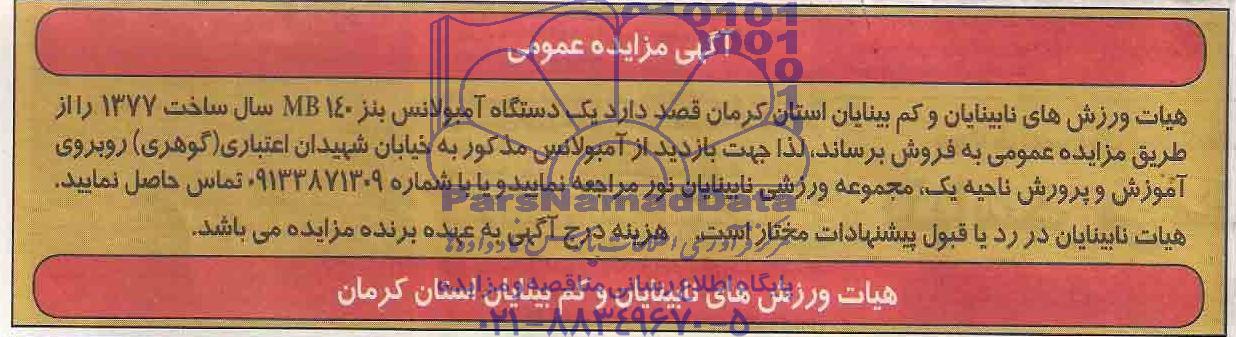 آگهی مزایده عمومی
هیات ورزش های نابینایان و کم بینایان استان کرمان قصد دارد یک دستگاه آمبولانس بنز MB ۱۴۰ سال ساخت ۱۳۷۷ رااز
طریق مزایده عمومی به فروش برساند، لذا جهت بازدید از آمبولانس مذکور به خیابان شهیدان اعتباری(گوهری) روبروی
آموزش و پرورش ناحیه یک، مجموعه ورزشی نابینایان نور مراجعه نمایید و یا با شماره ۰۹۱۳۳۸۷۱۳۰۹ تماس حاصل نمایید.
هیات نابینایان در رد یا قبول پیشنهادات مختار است. هزینه درج آگهی به عهده برنده مزایده می باشد.
هیات ورزش های نابینایان و کم بینایان استان کرمان
ParsNamadData
پایگاه اطلاع رسانی مناقصه و مزایده
۰۲۱-۸۸۳۴۹۶۷۰-۵